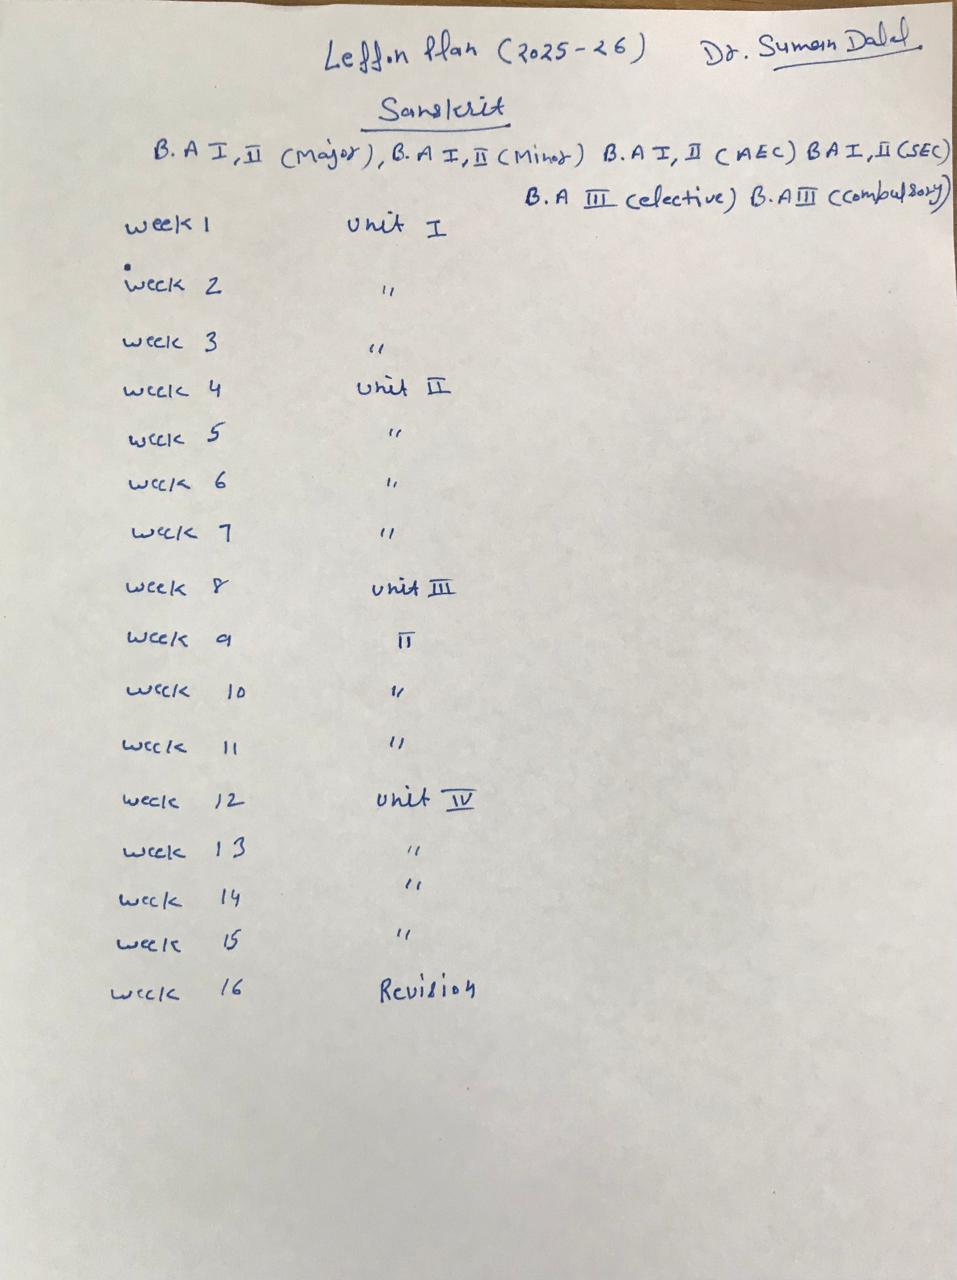 Lesson Plan (2025-26) Dr. Suman Dalal
Sanskrit
B.A I, II (Major), B.A I, II (Minor) B.A I, II (AEC) BA I, II (SEC)
B.A III (elective) B.A III (Combulsory)
week 1 Unit I
week 2 "
week 3 "
week 4 Unit II
week 5 "
week 6 "
week 7 "
week 8 Unit III
week 9 "
week 10 "
week 11 "
week 12 Unit IV
week 13 "
week 14 "
week 15 "
week 16 Revision